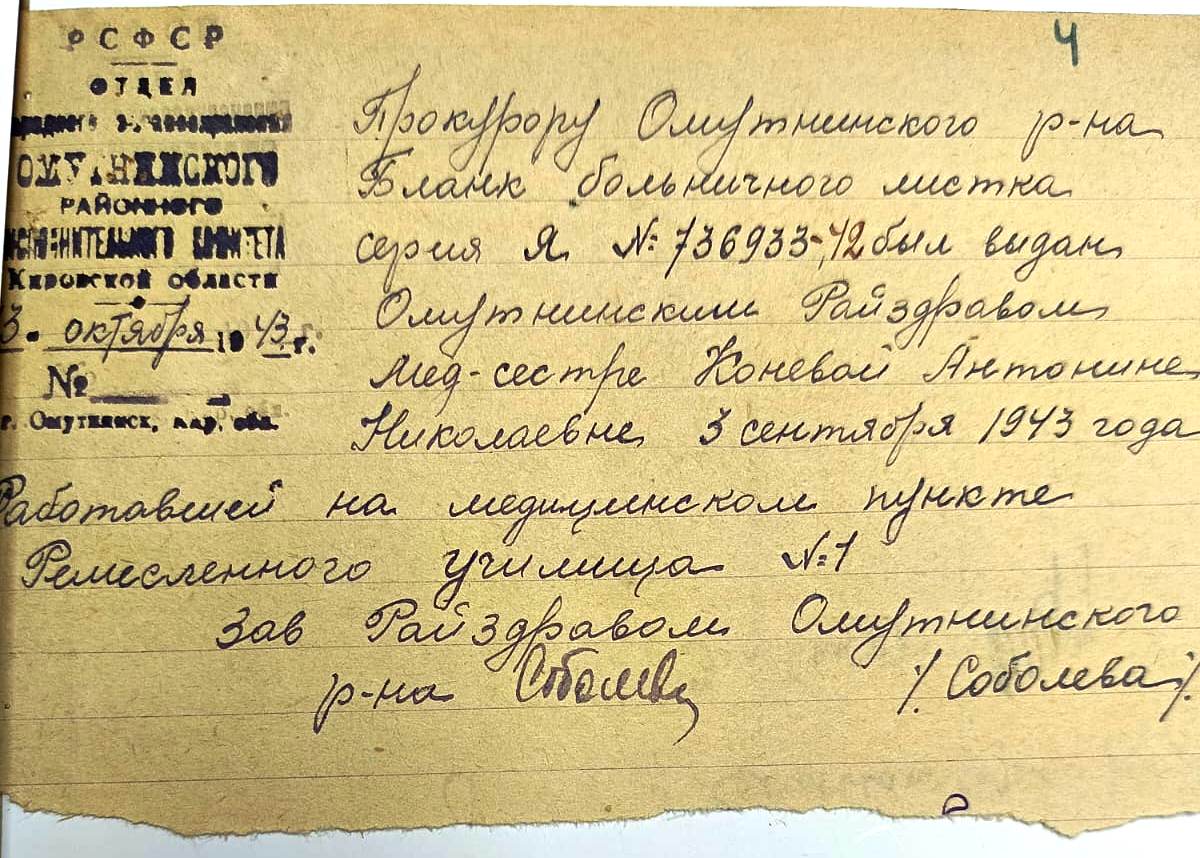 4
РСФСР
ОТДЕЛ
здравоохранения
ОМУТНИНСКОГО
РАЙОННОГО
ИСПОЛНИТЕЛЬНОГО КОМИТЕТА
Кировской области
3. октября 1943 г.
№
г. Омутнинск, Кир. обл.
Прокурору Омутнинского р-на
Бланк больничного листка
серия Я № 736933-42 был выдан
Омутнинским Райздравом
мед-сестре Коневой Антонине
Николаевне 3 сентября 1943 года
Работавшей на медицинском пункте
Ремесленного училища №1
Зав Райздравом Омутнинского
р-на Соболева /. Соболева /.